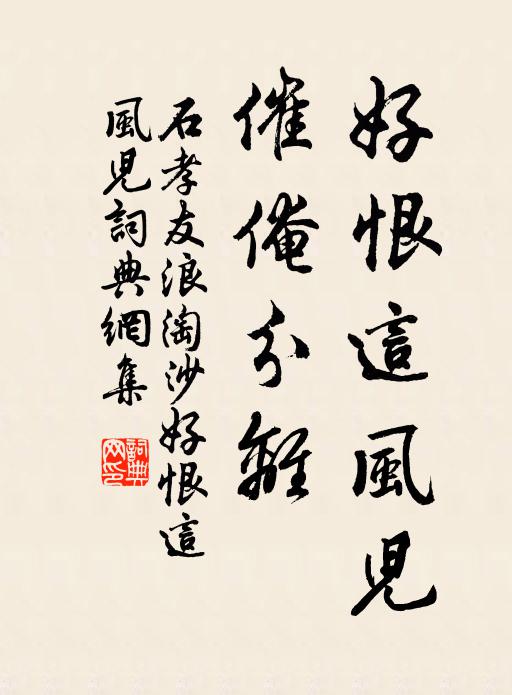 好恨這風兒
催俺分離
石孝友浪淘沙好恨這
風兒詞典網集
詞典網印